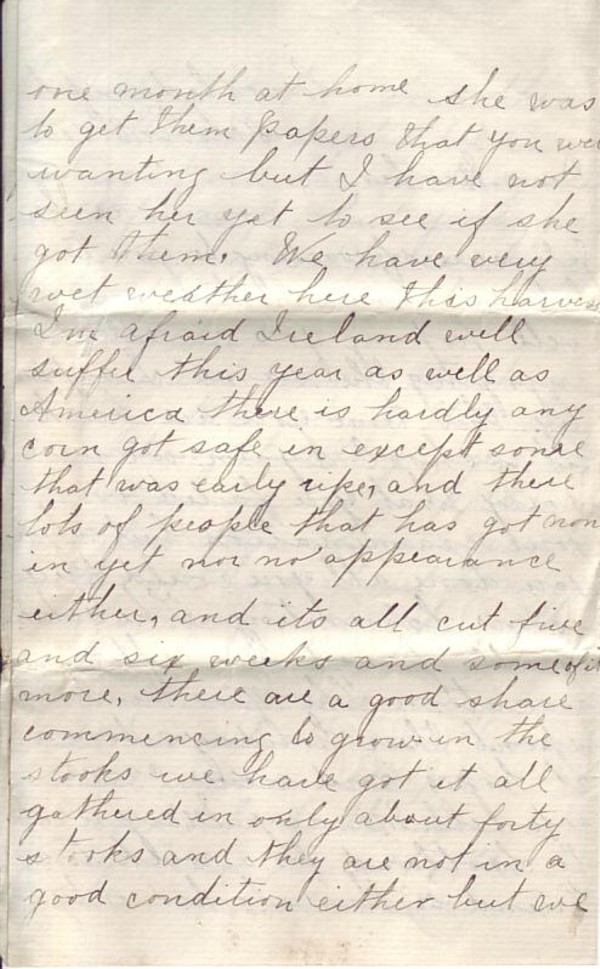 one month at home she was
to get them papers that you wer
wanting but I have not
seen her yet to see if she
got them. We have very
wet weather here this harves
I'm afraid Ireland will
suffer this year as well as
America there is hardly any
corn got safe in except some
that was early ripe, and there
lots of people that has got non
in yet nor no appearance
either, and its all cut five
and six weeks and some of it
more, there are a good share
commencing to grow in the
stooks we have got it all
gathered in only about forty
stooks and they are not in a
good condition either but we